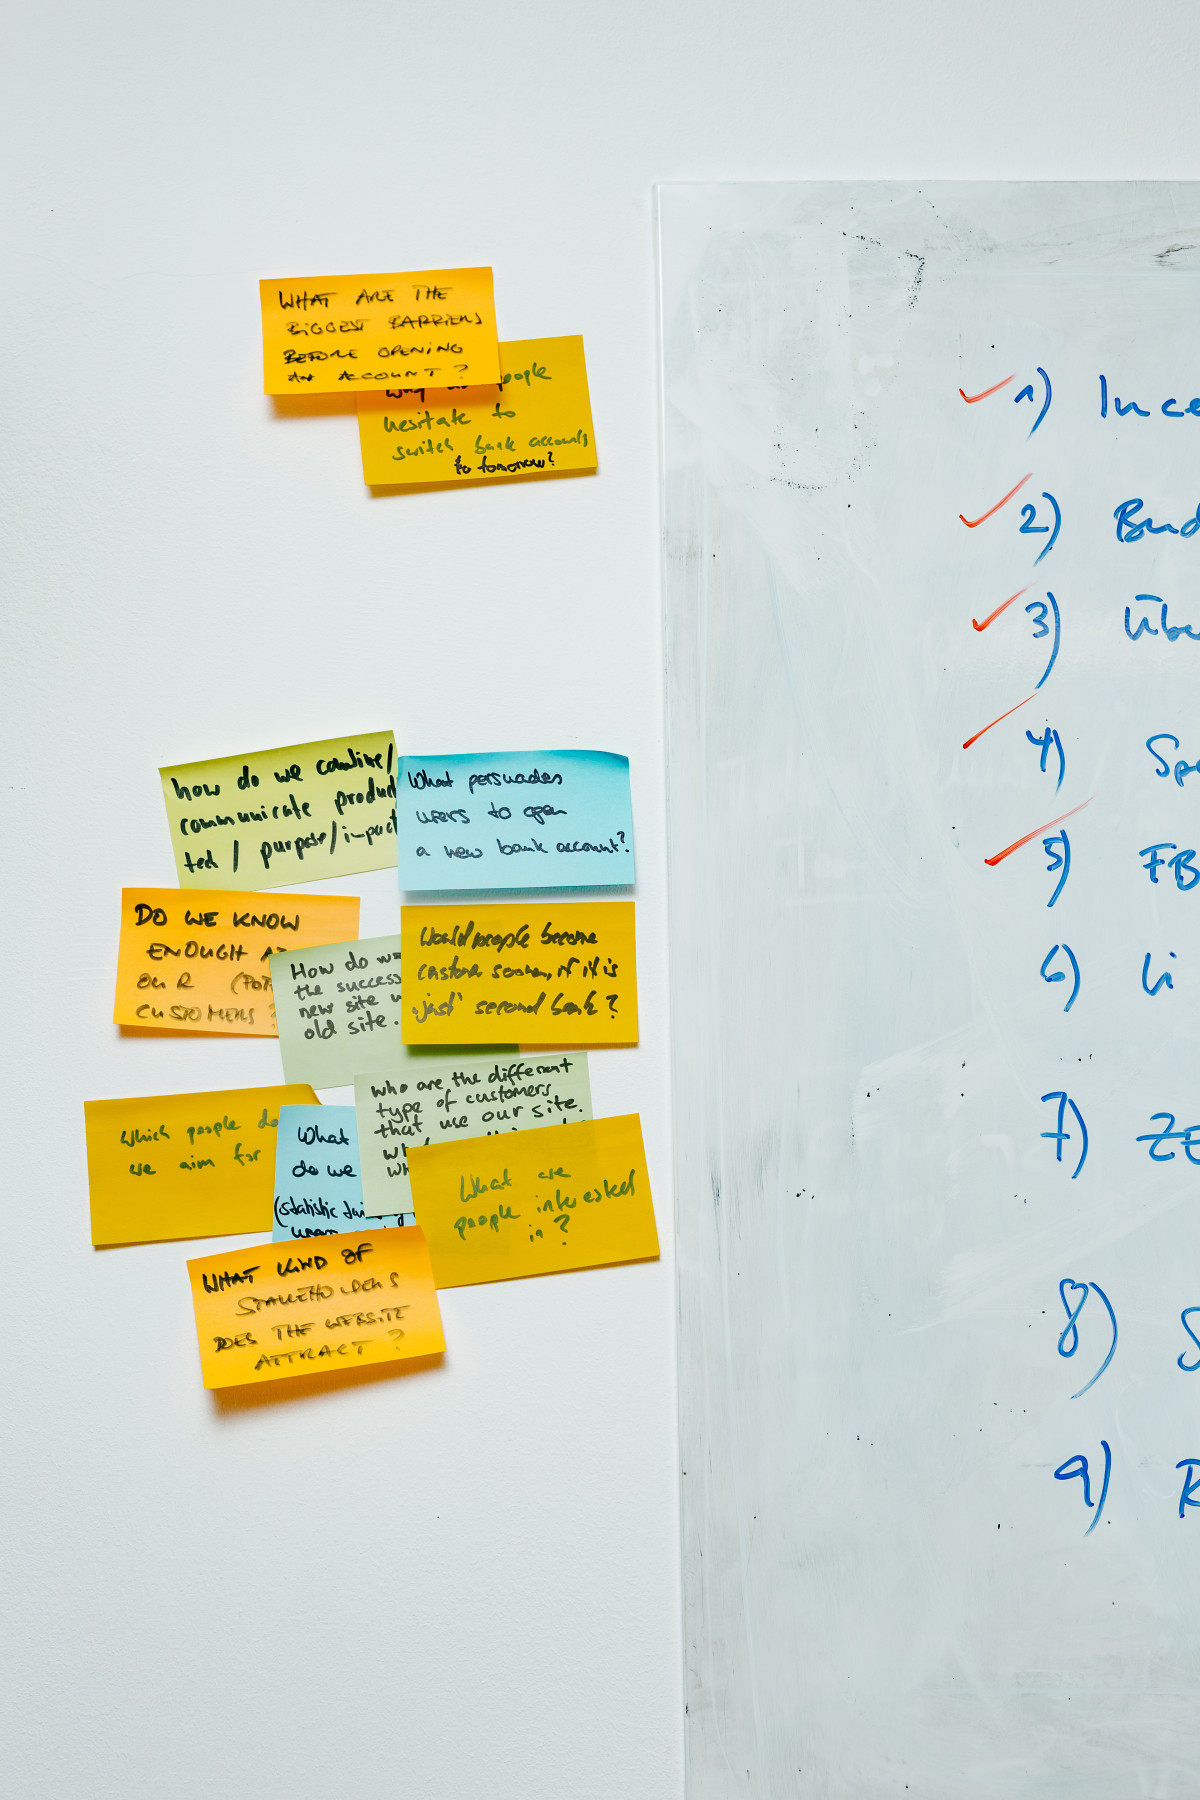 WHAT ARE THE
BIGGEST BARRIERS
BEFORE OPENING
AN ACCOUNT?
people
hesitate to
switch bank accounts
to tomorrow?
how do we combine/
communicate product
tech / purpose/impact
What persuades
users to open
a new bank account?
DO WE KNOW
ENOUGH
OUR
CUSTOMERS ?
How do we
the success
new site
old site.
Would people become
sooner, if it is
'just' second bank?
Which people do
we aim for
What
do we
(statistic
who are the different
type of customers
that use our site.
What are
people interested
in?
WHAT KIND OF
STAKEHOLDERS
DOES THE WEBSITE
ATTRACT ?
1) Ince
2) Bud
3) Übe
4) Spe
5) FB
6) Li
7) ZE
8) S
9) R